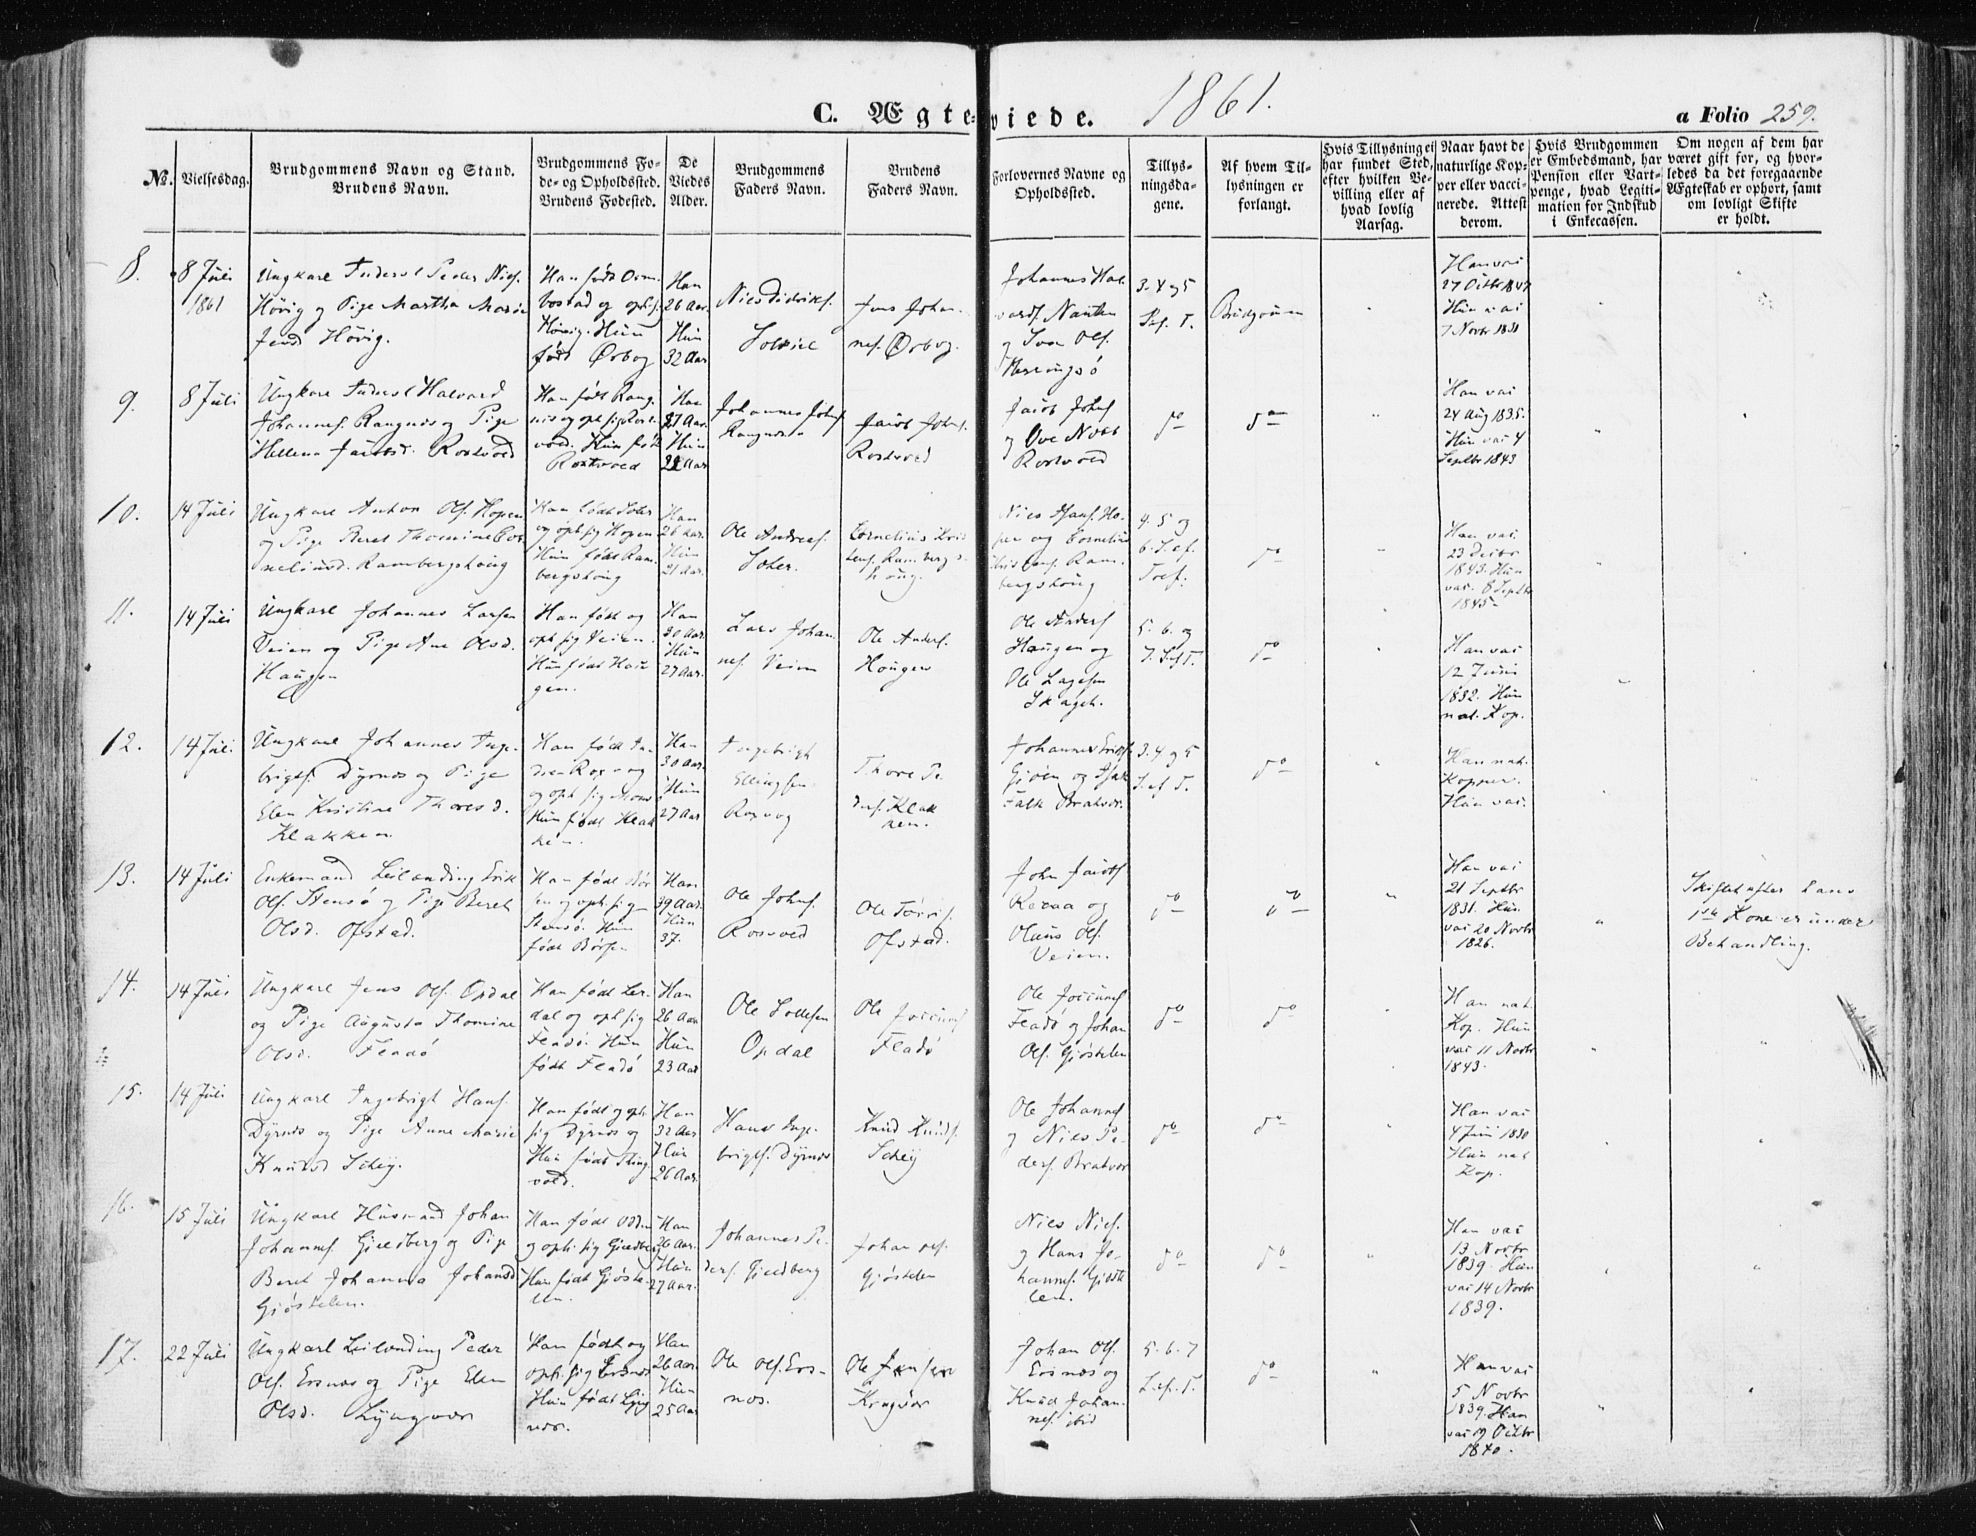 1861.
C. Ægteviede.
a Folio 259.
No.
Vielsesdag.
Brudgommens Navn og Stand.
Brudens Navn.
Brudgommens Fø-
de- og Opholdssted.
Brudens Fødested.
De
Viedes
Alder.
Brudgommens
Faders Navn.
Brudens
Faders Navn.
Forlovernes Navne og
Opholdssted.
Tillys-
ningsda-
gene.
Af hvem Til-
lysningen er
forlangt.
Hvis Tillysning ei
har fundet Sted,
efter hvilken Be-
villing eller af
hvad lovlig
Aarsag.
Naar havt de
naturlige Kop-
per eller vacci-
nerede. Attest
derom.
Hvis Brudgommen
er Embedsmand, har
Pension eller Vart-
penge, hvad Legiti-
mation for Indskud
i Enkecassen.
Om nogen af dem har
været gift før, og hvor-
ledes da det foregaaende
Ægteskab er ophørt, samt
om lovligt Skifte
er holdt.
8.
8 Juli
1861
Ungkarl Peder Niels.
Høvig og Pige Martha
Jensd Høvig.
Han født
og oph. sig
Høvig. Hun
født Ørbog
Han
26 Aar.
Hun
32 Aar
Niels Didriks.
Jens Johan-
nes. Ørbog.
Johannes Hal-
vards.
og Iver Ols.
3. 4 og 5
S. ef. T.
Brudgom
Han vac
27 Octbr 1847
Hun vac
7 Novbr 1831
9.
8 Juli
Ungkarl Halvard
Johannes. Rangnes og Pige
Hellena Jacobsd. Rostvold
Han født Rang-
nes og oph. sig Rost-
vold. Hun født
Rostvold
Han
27 Aar.
Hun
Aar
Johannes Johns.
Rangnes
Jacob Johns.
Rostvold
Jacob Johns
og Ove
Rostvold
do
do
Han vac
24 Aug 1835.
Hun vac 4
Septbr 1843
10.
14 Juli
Ungkarl Anton Ols. Hopen
og Pige Beret Thomine Cor-
neliusd. Rambergshoug
Han født
og oph. sig Hopen
Hun født Ram-
bergshoug
Han
26 Aar.
Hun
21 Aar.
Ole Andreas.
Cornelius Kris-
tens. Rambergs-
houg.
Niels Hans. Ho-
pen og Cornelius
Kristens. Ram-
bergshoug
4. 5 og
6. S. ef.
Tref.
do
Han vac.
23 Decbr
1843. Hun
vac. 8 Septbr
1845.
11.
14 Juli
Ungkarl Johannes Larsen
Veien og Pige Ane Olsd.
Haugen
Han født og
oph. sig Veien.
Hun født Hau-
gen.
Han
30 Aar.
Hun
27 Aar.
Lars Johan-
nes. Veien
Ole Anders.
Haugen
Ole Anders
Haugen og
Ole Larsen
5. 6. og
7. S. ef T.
do
Han vac
12 Juni
1832. Hun
nat. Kop.
12.
14 Juli
Ungkarl Johannes Inge-
brigts. Dyrnes og Pige
Elen Kristine Thoresd.
Klakken
Han født
og oph. sig
Hun født Klak-
ken.
Han
30 Aar
Hun
27 Aar
Ingebrigt
Ellingsen
Roxvog
Thore Pe-
ders. Klak-
ken.
Johannes Eriks
Gjøen og Isak
Falk Bratvær.
3. 4 og 5
S. ef T.
do
Han nat.
Kopper.
Hun vac.
13.
14 Juli
Enkemand Leilending Erik
Ols. Stensø og Pige Beret
Olsd. Ofstad.
Han født Bør-
sen og oph. sig
Stensø. Hun
født Børsen
Han
39 Aar.
Hun
37.
Ole Johns.
Rosvold
Ole Torris.
Ofstad.
John Jacobs
Rexaa og
Olaus Ols.
Veien.
do
do
Han vac
21 Septbr
1831. Hun
vac 20 Novbr
1826.
Skiftet efter hans
1ste Kone er under
Behandling.
14.
14 Juli
Ungkarl Jens Ols. Opdal
og Pige Augusta Thomine
Olsd. Fladø
Han født Ler-
dal og oph. sig
Fladø. Hun
født Fladø
Han
26 Aar
Hun
23 Aar
Ole
Opdal
Ole
Fladø
Ole
Fladø og Johan
Ols. Gjøstelen
do
do
Han nat.
Kop. Hun
vac 11 Novbr
1843.
15.
14 Juli
Ungkarl Ingebrigt Hans.
Dyrnes og Pige Anne Marie
Knudsd Schey.
Han født og oph.
sig Dyrnes og
Hun født Ting-
vold.
Han
32 Aar
Hun
26 Aar.
Hans Inge-
brigts. Dyrnes
Knud Knuds.
Schey
Ole Johannes
og Niels Pe-
ders. Bratvær
do
do
Han vac
4 Juni 1830
Hun nat
Kop.
16.
15 Juli
Ungkarl Husmand Johan
Johannes. Gjeldberg og Pige
Beret Johanna Johansd
Gjøstelen.
Han født
og oph. sig Gjeldberg
Hun født Gjøste-
len.
Han
26 Aar.
Hun
27 Aar.
Johannes Pe-
ders. Gjeldberg
Johan Ols.
Gjøstelen
Niels Niels.
og Hans Jo-
hannes. Gjøste-
len.
do
do
Han vac
13 Novbr
1839. Hun
vac 14 Novbr
1839.
17.
22 Juli
Ungkarl Leilending Peder
Ols. Ersnes og Pige Elen
Olsd. Lyngvær
Han født og
oph. sig Ersnes
Hun født Lyng-
vær.
Han
26 Aar.
Hun
25 Aar
Ole Ols. Ers-
nes.
Ole Jensen
Kragvær
Johan Ols.
Ersnes og
Knud Johan-
nes. ibid
5. 6. 7
S. ef. T.
do
Han vac
5 Novbr
1839. Han
vac 19 Octbr
1840.